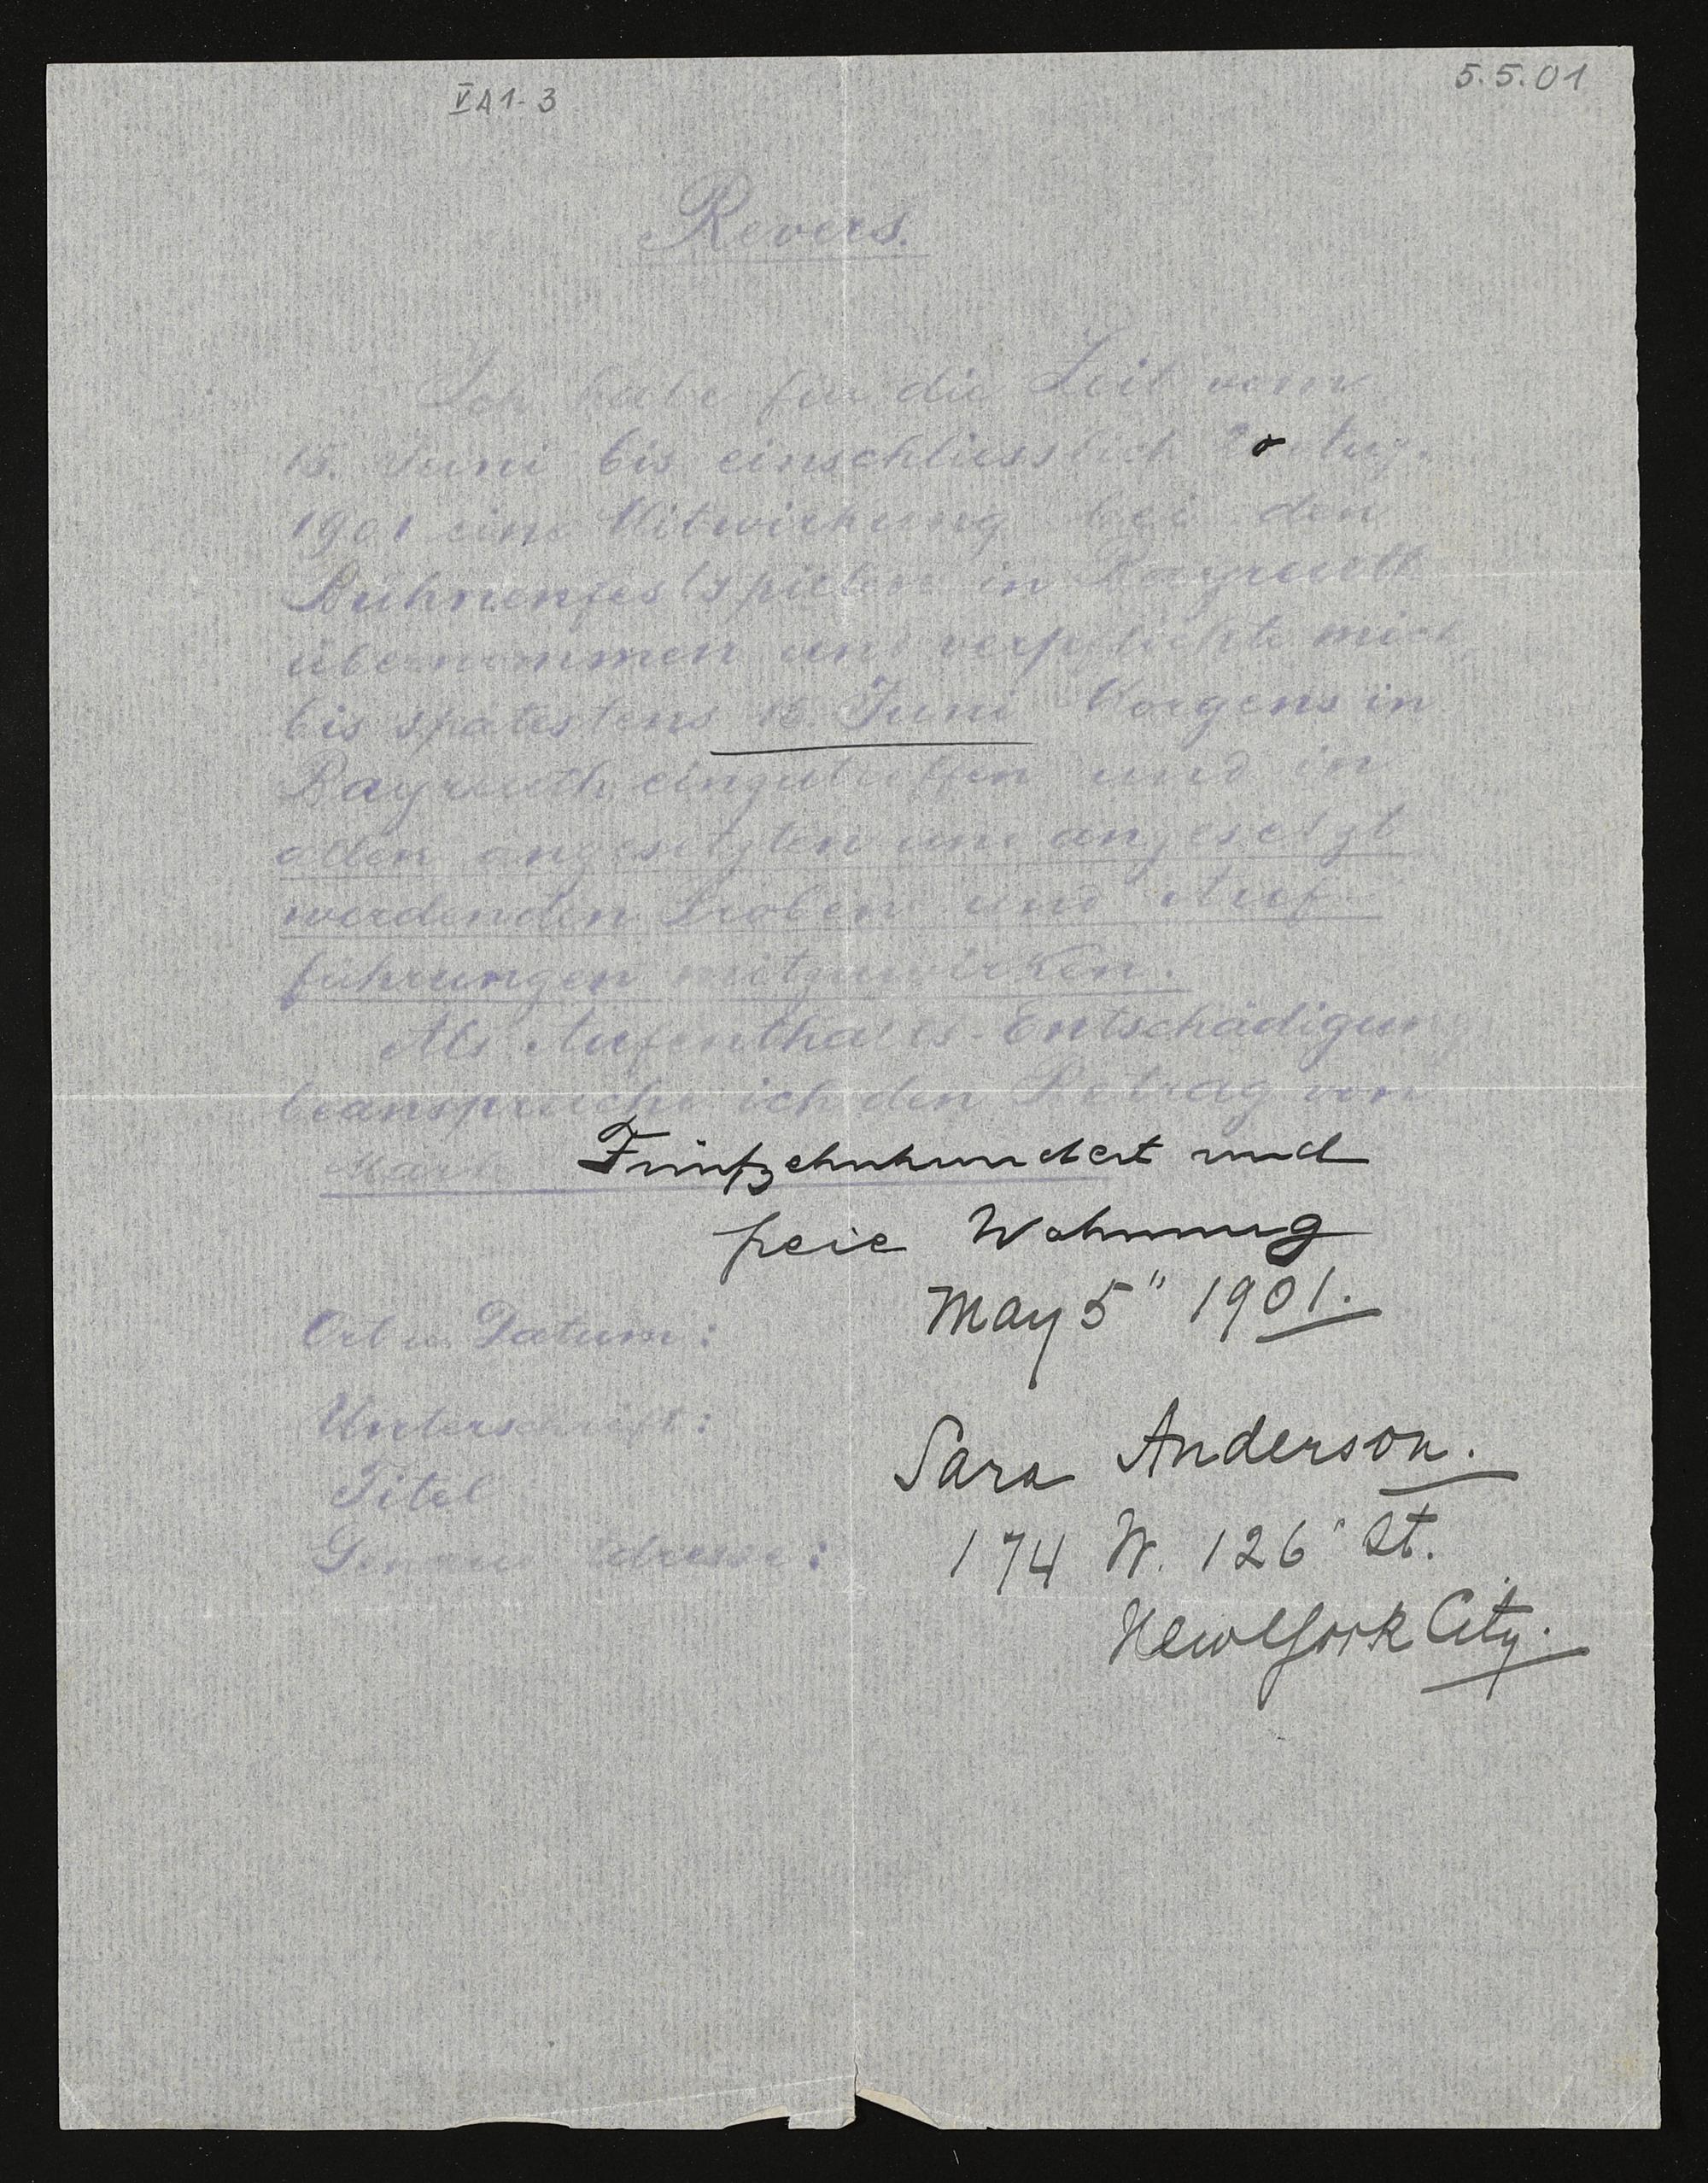 V A 1-3
5.5.01
Revers.
Ich habe für die Zeit vom
15. Juni bis einschliesslich 20 Aug.
1901 eine Mitwirkung bei den
Bühnenfestspielen in Bayreuth
übernommen und verpflichte mich
bis spätestens 15. Juni Morgens in
Bayreuth einzutreffen und in
allen angesetzten und angesetzt
werdenden Proben und Auf-
führungen mitzuwirken.
Als Aufenthalts-Entschädigung
beanspruche ich den Betrag von
Mark Fünfzehnhundert und
freie Wohnung
Ort u. Datum: May 5" 1901.
Unterschrift: Sara Anderson.
Titel
Genaue Adresse: 174 W. 126' St.
New York City.